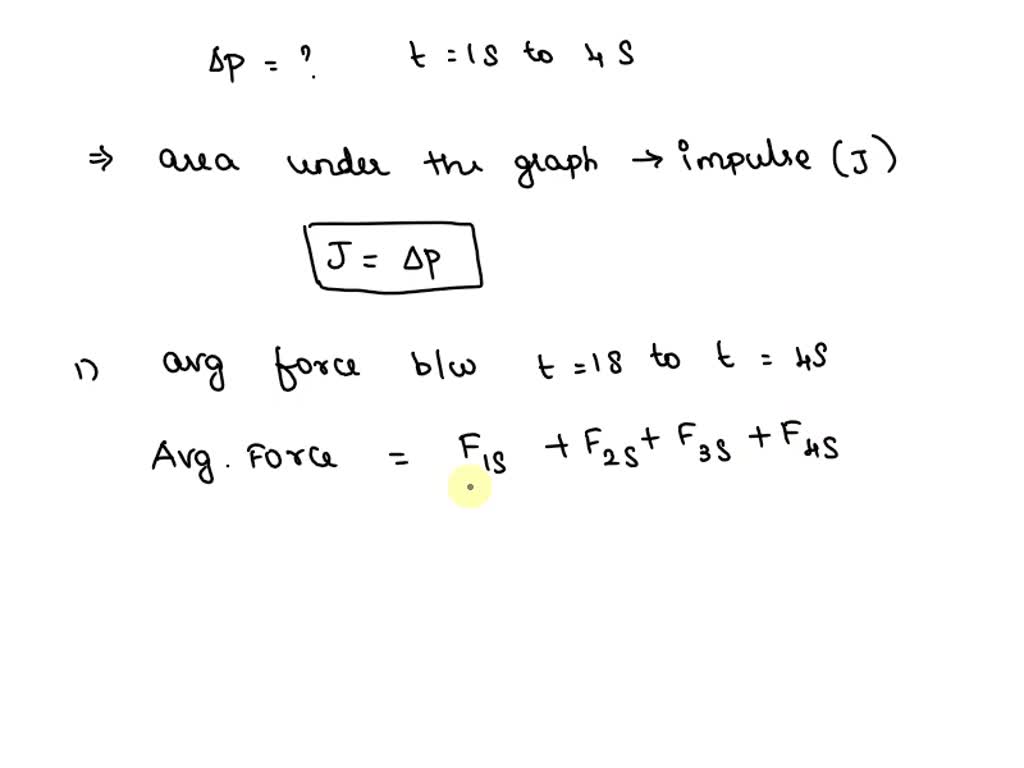 Δp = ? t = 1s to 4 s
⇒ area under the graph → impulse (J)
J = Δp
1) avg force b/w t = 1s to t = 4s
Avg. Force = F1s + F2s + F3s + F4s